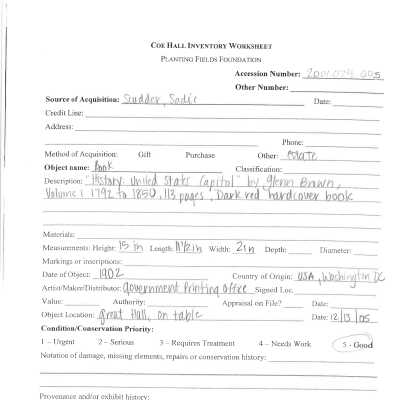 COE HALL INVENTORY WORKSHEET
PLANTING FIELDS FOUNDATION
Accession Number: 2001.024.005
Other Number:
Source of Acquisition: Scudder, Sadie Date:
Credit Line:
Address:
Phone:
Method of Acquisition: Gift Purchase Other: estate
Object name: Book Classification:
Description: "History: United States Capitol" by Glenn Brown,
Volume 1 1792 to 1850, 113 pages, Dark red hardcover book
Materials:
Measurements: Height: 15 in Length: 11 1/2 in Width: 2 in Depth: Diameter:
Markings or inscriptions:
Date of Object: 1902 Country of Origin: USA, Washington DC
Artist/Maker/Distributor: Government Printing Office Signed Loc.
Value: Authority: Appraisal on File? Date:
Object Location: Great Hall, on table Date: 12/13/05
Condition/Conservation Priority:
1 – Urgent 2 – Serious 3 – Requires Treatment 4 – Needs Work 5 - Good
Notation of damage, missing elements, repairs or conservation history:
Provenance and/or exhibit history: